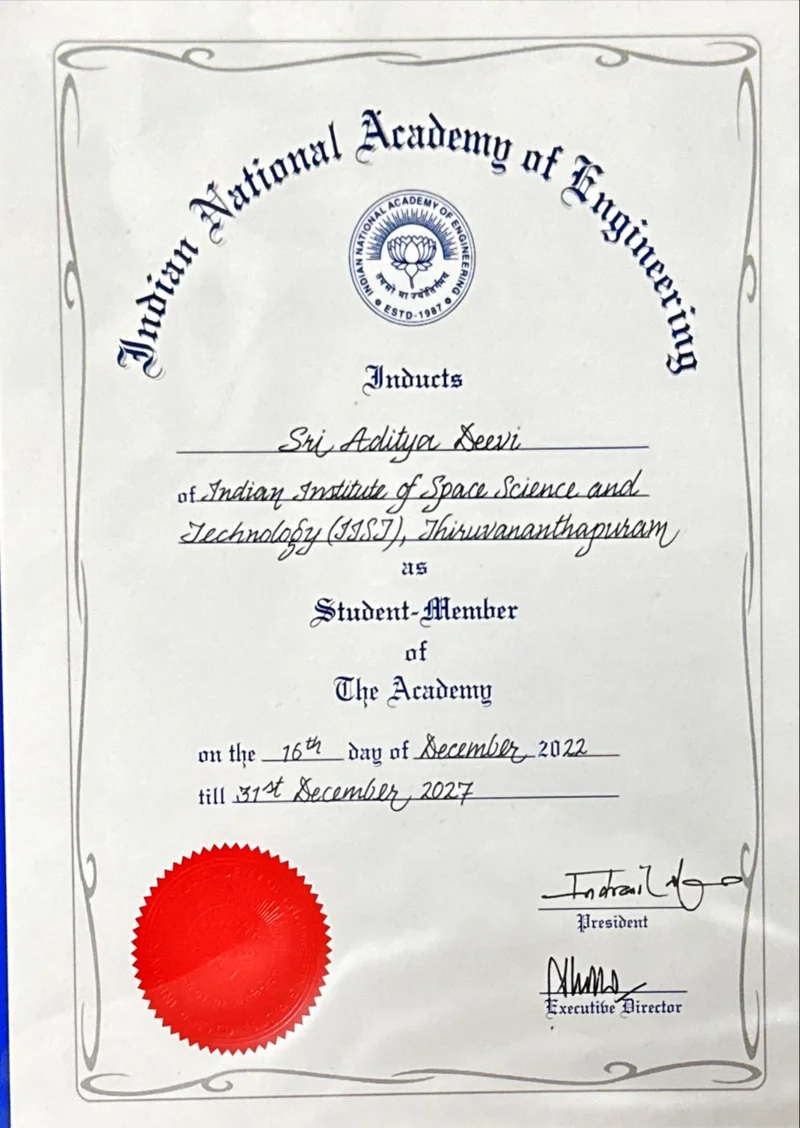 Indian National Academy of Engineering
INDIAN NATIONAL ACADEMY OF ENGINEERING
तमसो मा ज्योतिर्गमय
ESTD-1987
Inducts
Sri Aditya Deevi
of Indian Institute of Space Science and
Technology (IIST), Thiruvananthapuram
as
Student-Member
of
The Academy
on the 16th day of December 2022
till 31st December 2027
President
Executive Director